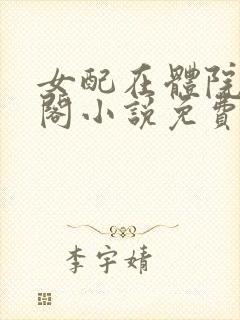 女配在體院
閣小說免費
李宇婧